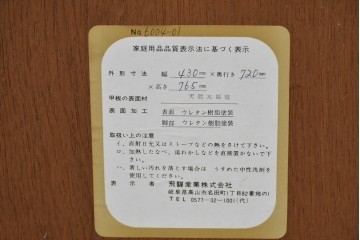 No 6004-01
家庭用品品質表示法に基づく表示
外形寸法 幅 430mm×奥行き 720mm
×高さ 765mm
甲板の表面材 天然木
表面加工 表面 ウレタン樹脂塗装
脚部 ウレタン樹脂塗装
取扱い上の注意
イ、直射日光又はストーブなどの熱をさけて下さい。
ロ、加熱したなべ、湯わかしなどを直接置かないで下さい。
ハ、著しい汚れを落とす場合は うすめた中性洗剤を
使用してください。
表示者 飛驒産業株式会社
岐阜県高山市名田町1丁目82番地の1
TEL 0577-32-1001(代)